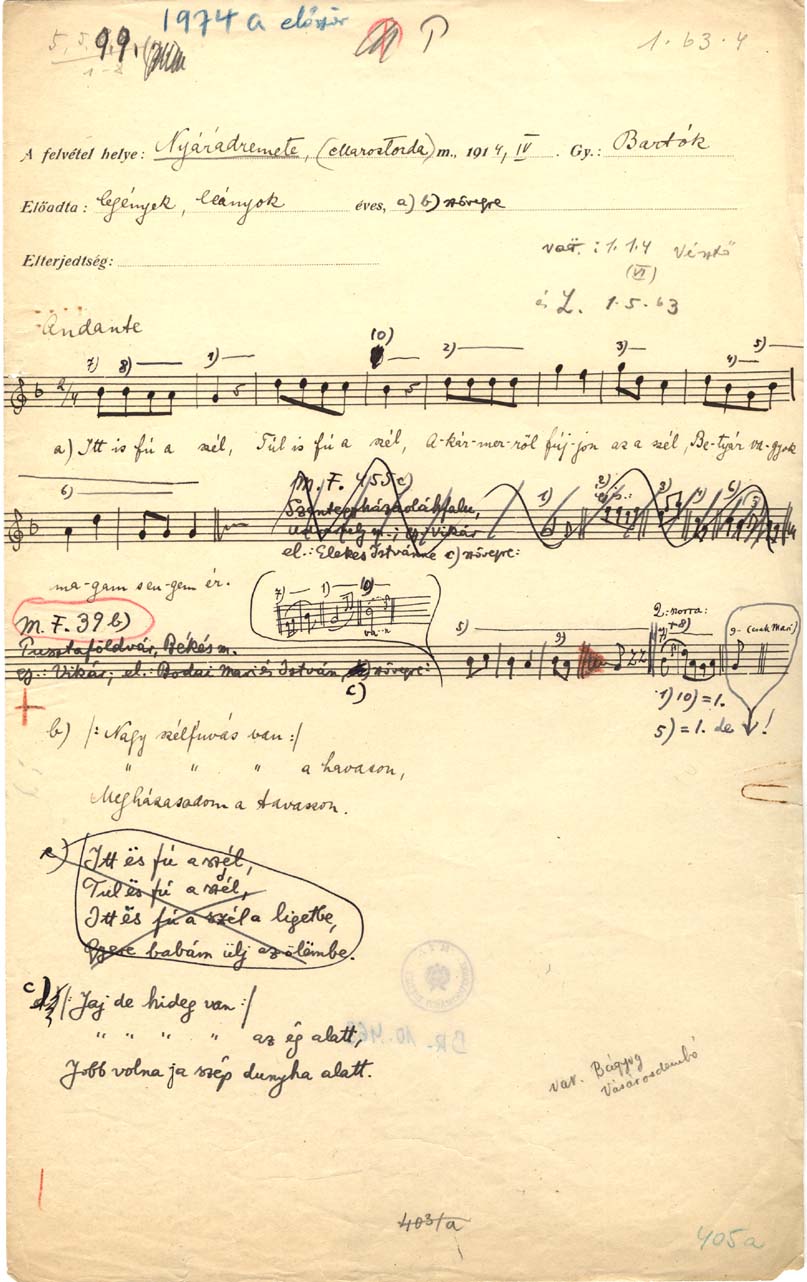 1974a először
99.
1-8
1.63.4
A felvétel helye: Nyárádremete, (Marostorda) m., 1914, IV. Gy.: Bartók
Előadta: legények, leányok éves, a) b) szövegre
Elterjedtség:
var.: 1.1.4 Vésztő
(VI)
és L. 1.5.63
Andante
10)
7) 8) 9) 2) 3) 4) 5)
2/4
a) Itt is fú a szél, Túl is fú a szél, A-kár-mer-ről fúj-jon az a szél, Be-tyár va-gyok
6)
M. F. 455c)
el.: Elekes Istvánné c) szövegre:
ma-gam sen-gem ér.
7) 1) 10)
va-n
M. F. 39b)
Pusztaföldvár, Békés m.
gy.: Vikár; el.: Bodai Mari és István, szövegre:
c)
5) 9)
2. -sorra:
7+8)
9- (csak Mari)
1) 10) = 1.
5) = 1. de !
b) /: Nagy szélfuvás van :/
" " " a havason,
Megházasodom a tavaszon.
Itt ës fú a szél,
Tul ës fú a szél,
Itt ës fú a szél a ligetbe,
Gyere babám ülj az ölëmbe.
c) /: Jaj de hideg van :/
" " " " az ég alatt,
Jobb volna ja szép dunyha alatt.
BR-10.465
var. Bágyog
Vásárosdombó
403/a
405a